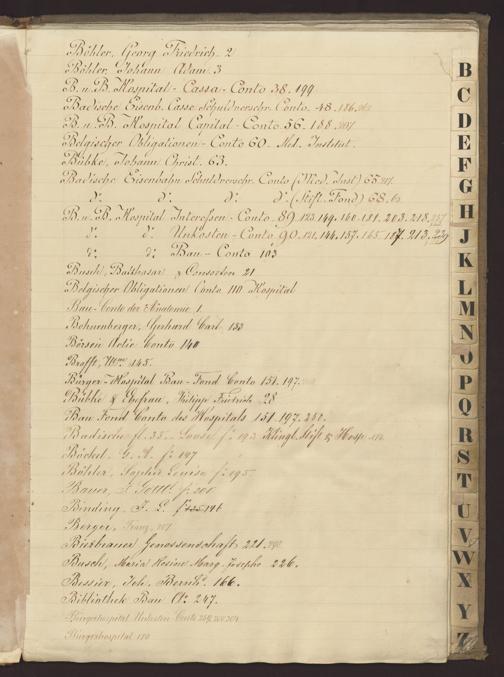 Böhler, Georg Friedrich 2
Böhler, Johann Adam 3
B. u. B. Hospital - Cassa - Conto 38. 199
Badische Eisenb. Casse Schuldverschr. Conto. 48. 186.
B. u. B. Hospital Capital - Conto 56. 188. 207
Belgischer Obligationen - Conto 60. Med. Institut.
Bübke, Johann Christ. 63.
Badische Eisenbahn Schuldverschr. Conto (Med. Inst) 65.
d:° d:° d:° d:° (Stift. Fond) 68.
B. u. B. Hospital Interessen - Conto. 89. 123. 149. 160. 181. 203. 218.
d:° d:° Unkosten - Conto 90. 121. 144. 157. 165. 187. 213. 229
d:° d:° Bau - Conto 103
Busch, Balthasar & Consorten 21
Belgischer Obligationen Conto 110 Hospital
Bau - Conto der Anatomie 1.
Bohnenberger, Gerhard Carl 133
Börsen Actie Conto 140
Brofft, 145.
Bürger - Hospital Bau - Fond Conto 151. 197.
Bübke & Ehefrau, Philipp Friedrich 28
Bau Fond Conto des Hospitals 151. 197. 242.
Badische fl. 35 Loose f:° 193 Klingl. Stift & Hosp.
Böckel. G. A. f:° 197
Böhler, Sophie Louise f:° 195
Bauer, J. Gottl. f:° 200
Binding, F. L. 146
Berger, Franz, 207
Bierbrauer Genossenschaft 221.
Busch, Maria Rosine Marg. Josepha 226.
Bessier, Joh. Bernh. 166.
Bibliothek Bau Cto. 247.
Bürgerhospital Unkosten Conto
Bürgerhospital
B
C
D
E
F
G
H
J
K
L
M
N
O
P
Q
R
S
T
U
V
W
X
Y
Z